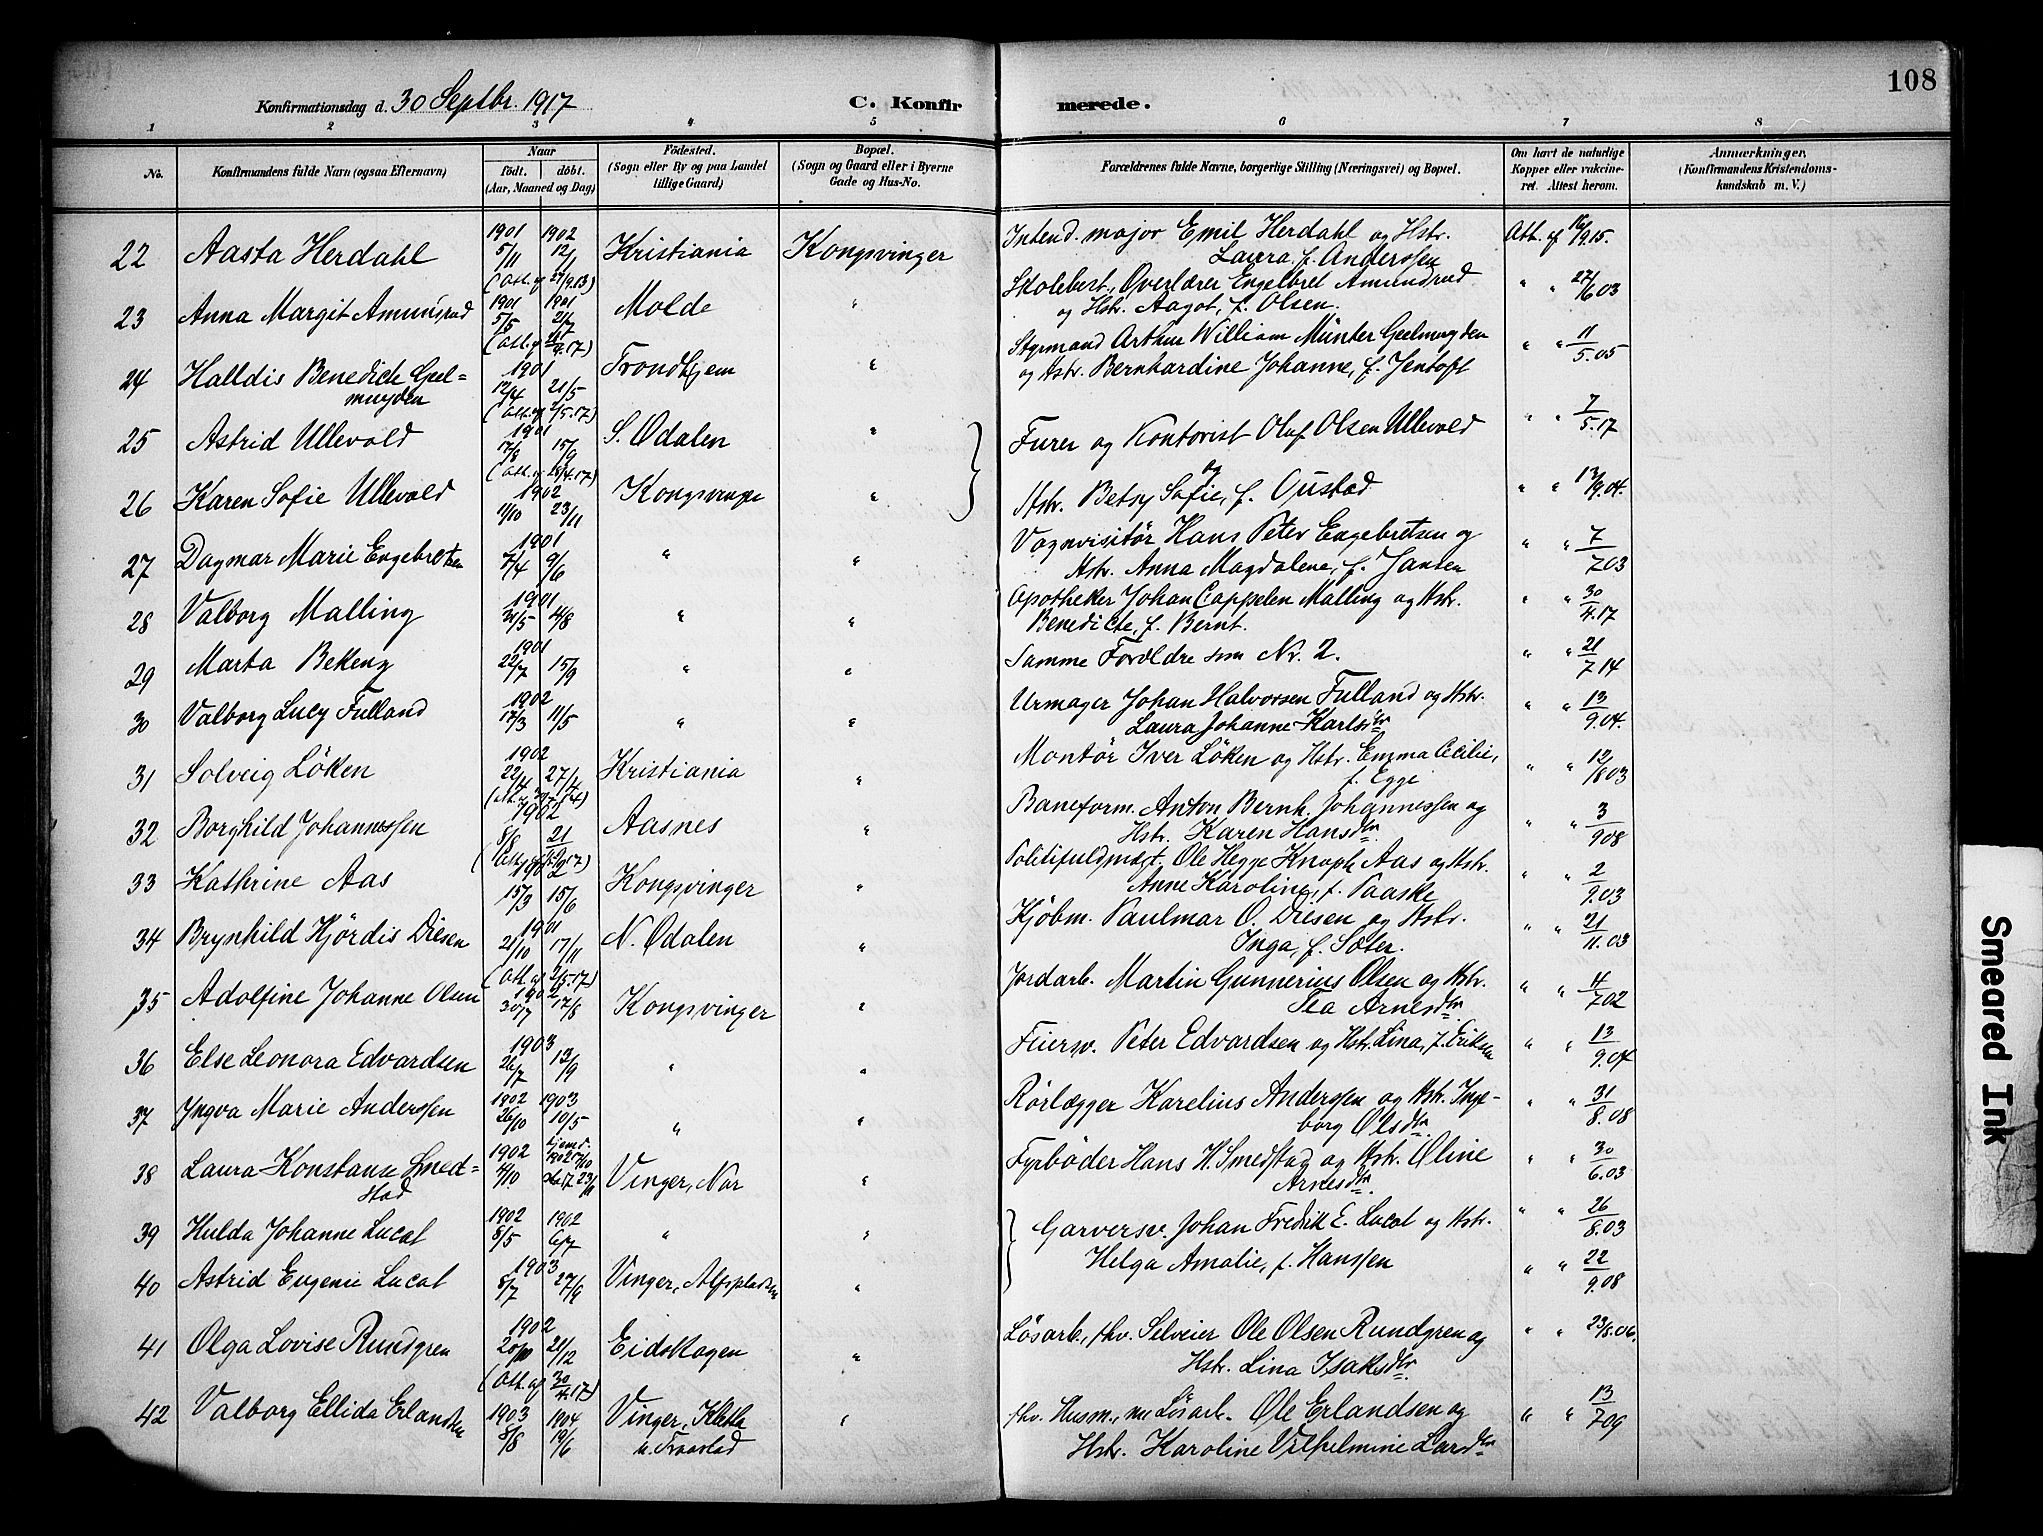 108
Konfirmationsdag d. 30 Septbr. 1917
C. Konfirmerede.
1 2 3 4 5 6 7 8
No.
Konfirmandens fulde Navn (ogsaa Efternavn)
Naar
født. døbt.
(Aar, Maaned og Dag)
Fødested.
(Sogn eller By og paa Landet
tillige Gaard)
Bopæl.
(Sogn og Gaard eller i Byerne
Gade og Hus-No.
Forældrenes fulde Navne, borgerlige Stilling (Næringsvei) og Bopæl.
Om havt de naturlige
Kopper eller vakcine-
ret. Attest herom.
Anmærkninger,
(Konfirmandens Kristendoms-
kundskab m. V.)
22 Aasta Herdahl 1901 5/11 1902 12/1 Kristiania Kongsvinger Intend. major Emil Herdahl og Hstr. Att. af 16/9 15.
Laura f. Anderssen
(Att. af 27/9.13)
23 Anna Margit Amundrud 1901 5/5 1901 2/6 Molde " Skolebest., Overlærer Engelbret Amundrud " " 27/6 03
og Hstr. Aagot, f. Olsen.
24 Halldis Benedicte Geel- 1901 12/4 21/5 Trondhjem " Styrmand Arthur William Münter Geelmuyden " " 11/5.05
muyden og Hstr. Bernhardine Johanne, f. Jentoft
(Att. af 2/5.17)
25 Astrid Ullevold 1901 17/8 15/9 S. Odalen " Furer og Kontorist Oluf Olsen Ullevold " " 7/5.17
og
26 Karen Sofie Ullevold 1902 1/10 23/11 Kongsvinger " Hstr. Betsy Sofie, f. Gustad " " 13/9.04.
27 Dagmar Marie Engebretsen 1901 7/4 9/6 " " Vognvisitør Hans Peter Engebretsen og " " 7/7 03
Hstr. Anna Magdalene, f. Jansen
28 Valborg Malling 1901 31/5 4/8 " " Apotheker Johan Cappelen Malling og Hstr. " " 30/4.17
Benedicte, f. Bernt.
29 Marta Bekeng 1901 22/7 15/9 " " Samme Forældre som Nr. 2. " " 21/7 14
30 Valborg Lucy Fulland 1902 17/3 11/5 " " Urmager Johan Halvorsen Fulland og Hstr. " " 13/9.04.
Laura Johanne Karlsdtr
31 Solveig Löken 1902 22/4 27/7 Kristiania " Montør Iver Löken og Hstr. Emma Cecilie, " " 12/8 03
f. Egge
32 Borghild Johannessen 1902 8/8 21/9 Aasnes " Baneform. Anton Bernh. Johannessen og " " 3/9 08
Hstr. Karen Hansdtr
33 Kathrine Aas 1902 15/3 15/6 Kongsvinger " Politifuldmægt. Ole Hegge Knoph Aas og Hstr. " " 2/9.03
Anne Karoline, f. Paaske
34 Brynhild Hjördis Diesen 1901 21/10 17/11 N. Odalen " Kjöbm. Paulmar O. Diesen og Hstr. " " 21/11.03
Inga, f. Sæter.
(Att. af 2/5.17)
35 Adolfine Johanne Olsen 1902 30/7 17/8 Kongsvinger " Jordarb. Martin Gunnerius Olsen og Hstr. " " 4/7 02
Tea Arnesdtr
36 Else Leonora Edvardsen 1903 26/7 13/9 " " Feiersv. Peter Edvardsen og Hstr. Lina, f. Eriksen " " 13/9.04
37 Yngva Marie Anderssen 1902 26/10 1903 10/5 " " Rørlægger Karelius Anderssen og Hstr. Inge- " " 31/8.08
borg Olsdtr
38 Laura Konstanse Smed- 1902 4/10 Vinger, Nor " Fyrbøder Hans H. Smedstad og Hstr. Oline " " 30/6.03
stad Arnesdtr.
39 Hulda Johanne Lucat 1902 8/5 1902 6/7 " " Garversv. Johan Fredrik E. Lucat og Hstr. " " 26/8.03
40 Astrid Eugenie Lucat 1903 8/7 27/9 Vinger, Alfspladsen " Helga Amalie, f. Hanssen " " 22/9.08
41 Olga Lovise Rundgren 1902 20/10 21/12 Eidskogen " Løsarb., fhv. Selveier Ole Olsen Rundgren og " " 23/8.06.
Hstr. Lina Isaksdtr
(Att. af 30/4.17)
42 Valborg Ellida Erlandsen 1903 8/8 1904 19/6 Vinger, " fhv. Husm., nu Løsarb. Ole Erlandsen og " " 13/7 09
Hstr. Karoline Vilhelmine Larsdtr
Smeared Ink